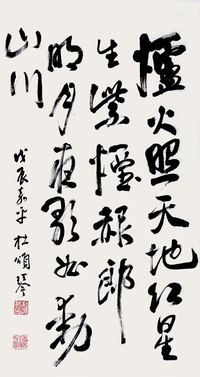 爐火照天地红星
生紫煙赧郎
明月夜歌曲動
山川
戊辰嘉平 杜頌琴